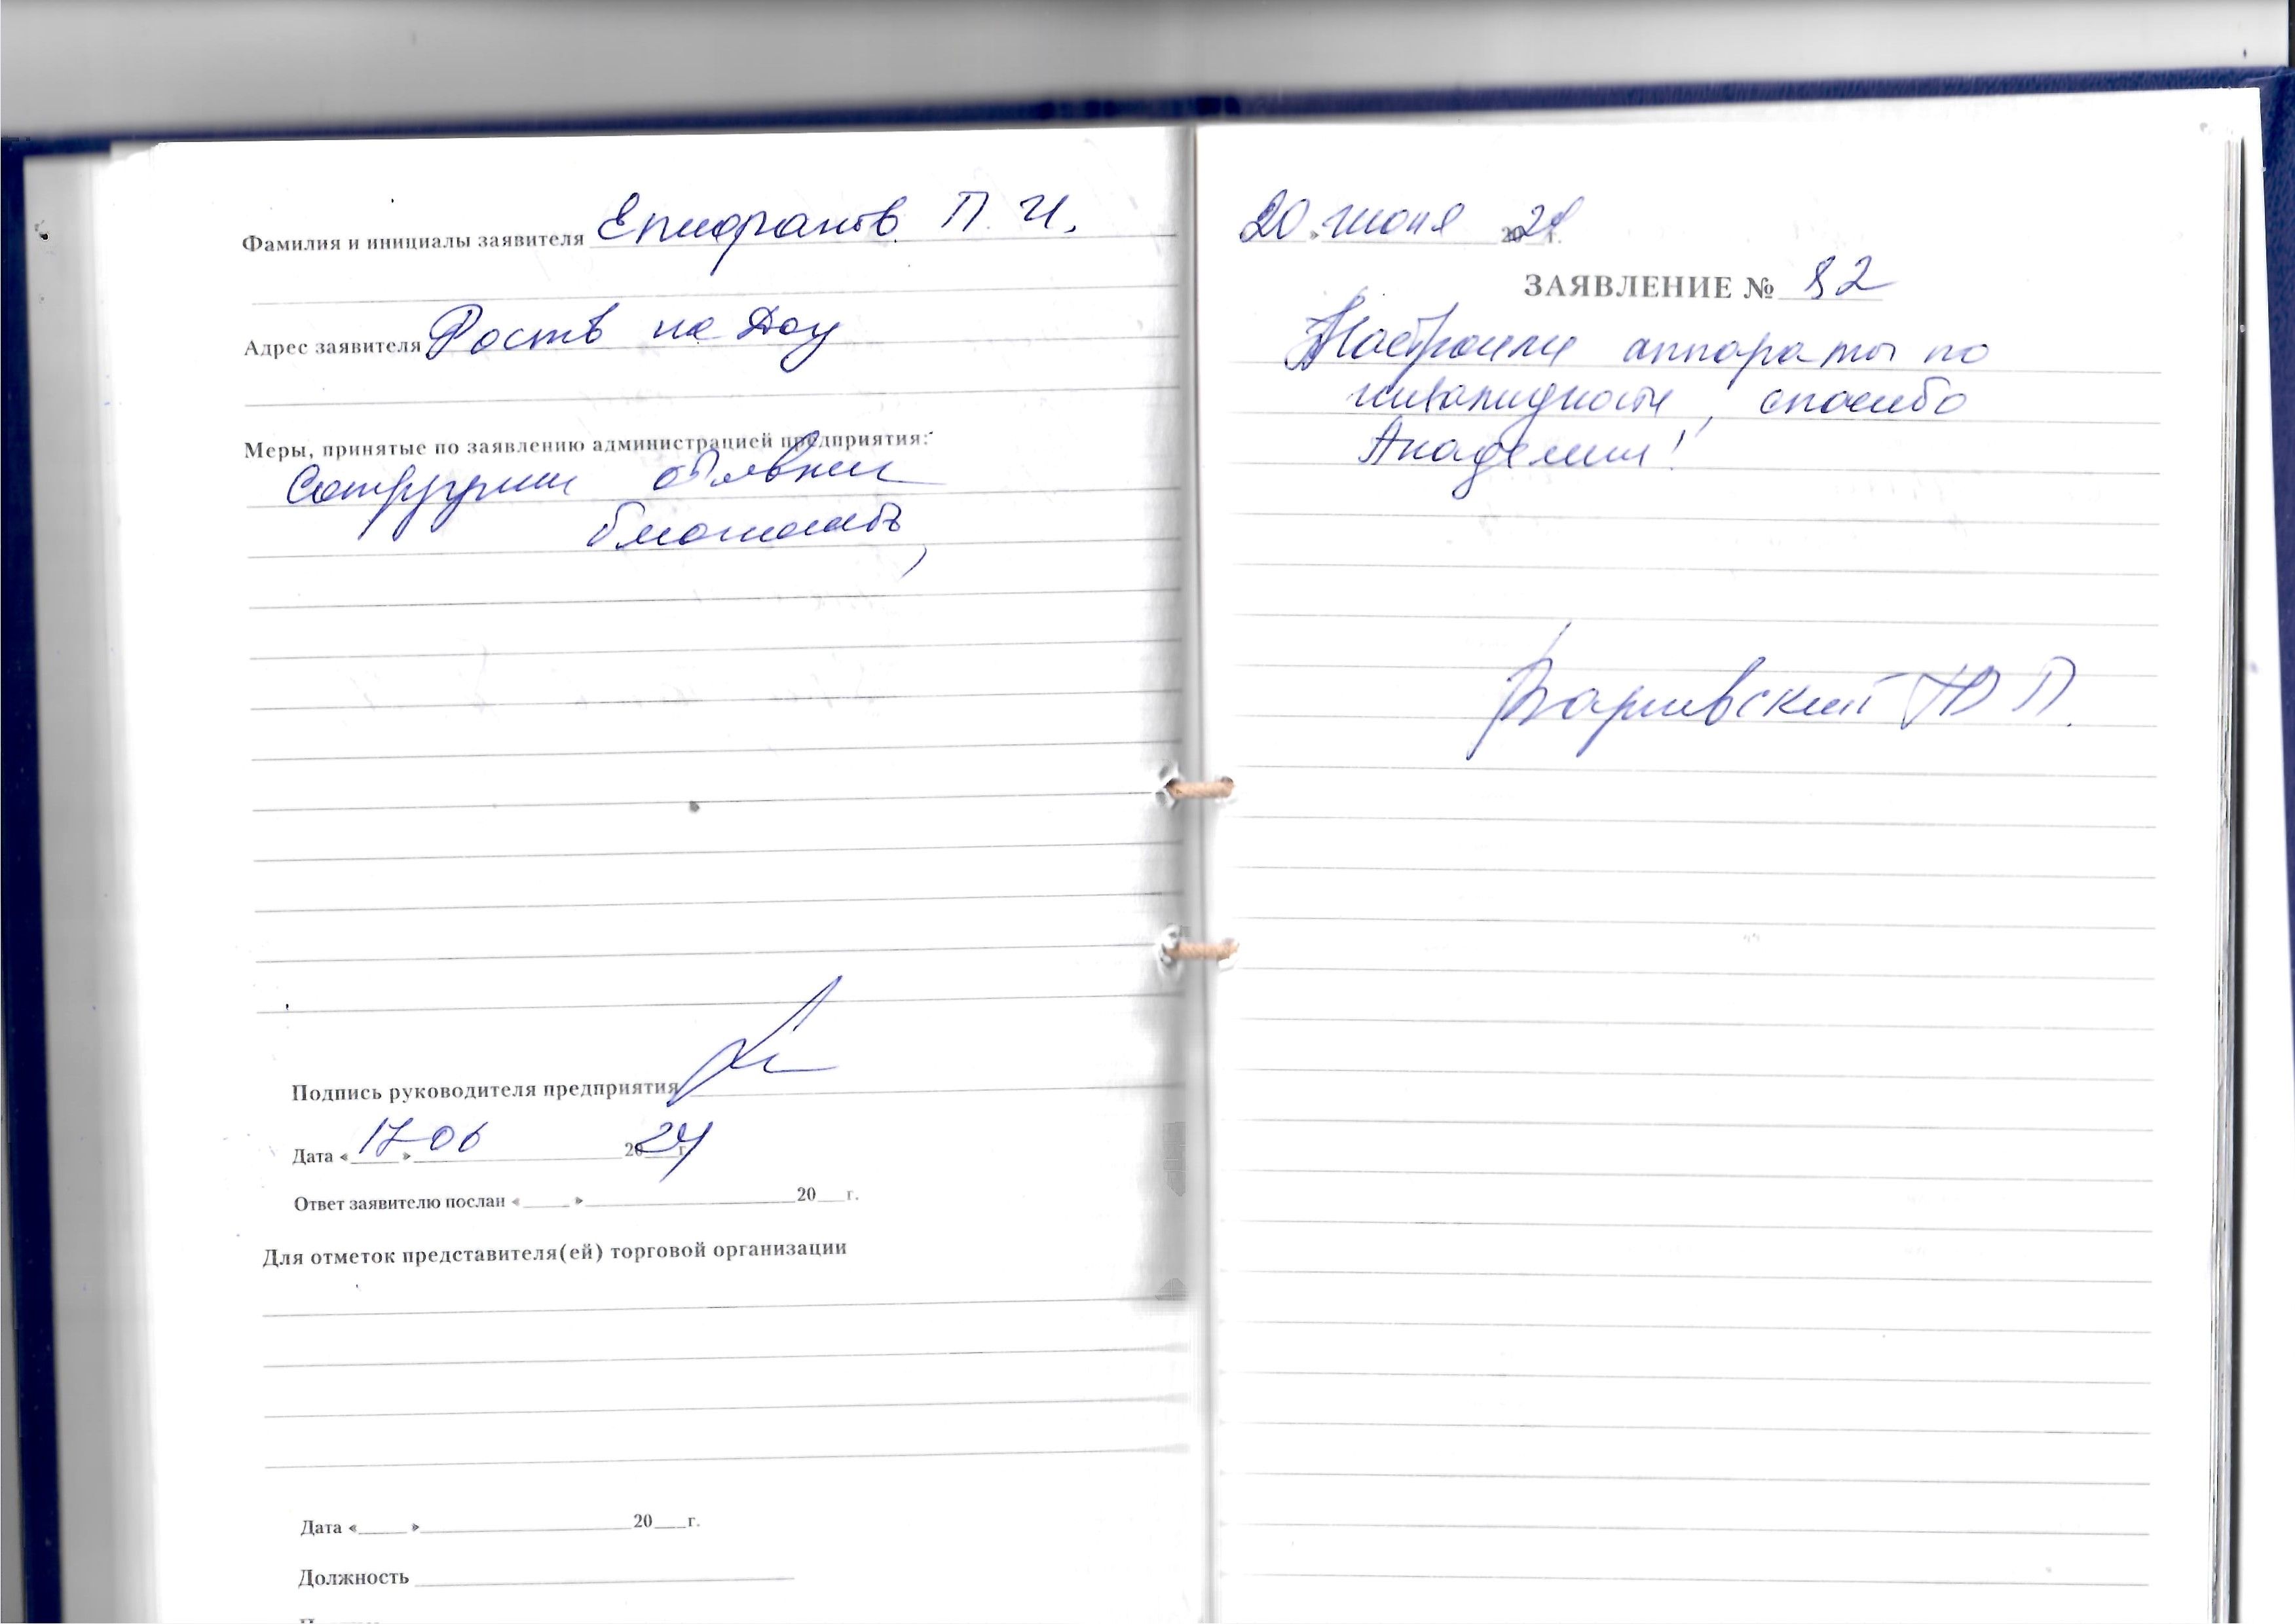 Фамилия и инициалы заявителя Епифанов П. И.
Адрес заявителя Ростов на Дону
Меры, принятые по заявлению администрацией предприятия:
Сотруднику объявлена
благодарность
Подпись руководителя предприятия
Дата « 17 » 06 2024 г.
Ответ заявителю послан « » 20 г.
Для отметок представителя(ей) торговой организации
Дата « » 20 г.
Должность
20 » июня 2024 г.
ЗАЯВЛЕНИЕ № 82
Настроили аппараты по
инвалидности, спасибо
Академия!
Ю П.